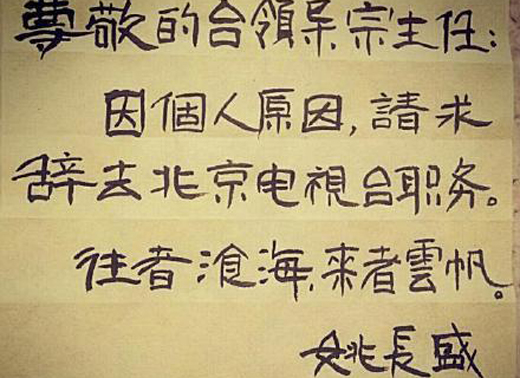 尊敬的台領导宗主任：
因個人原因，請求
辞去北京电視台职务。
往者滄海，來者雲帆。
姚長盛